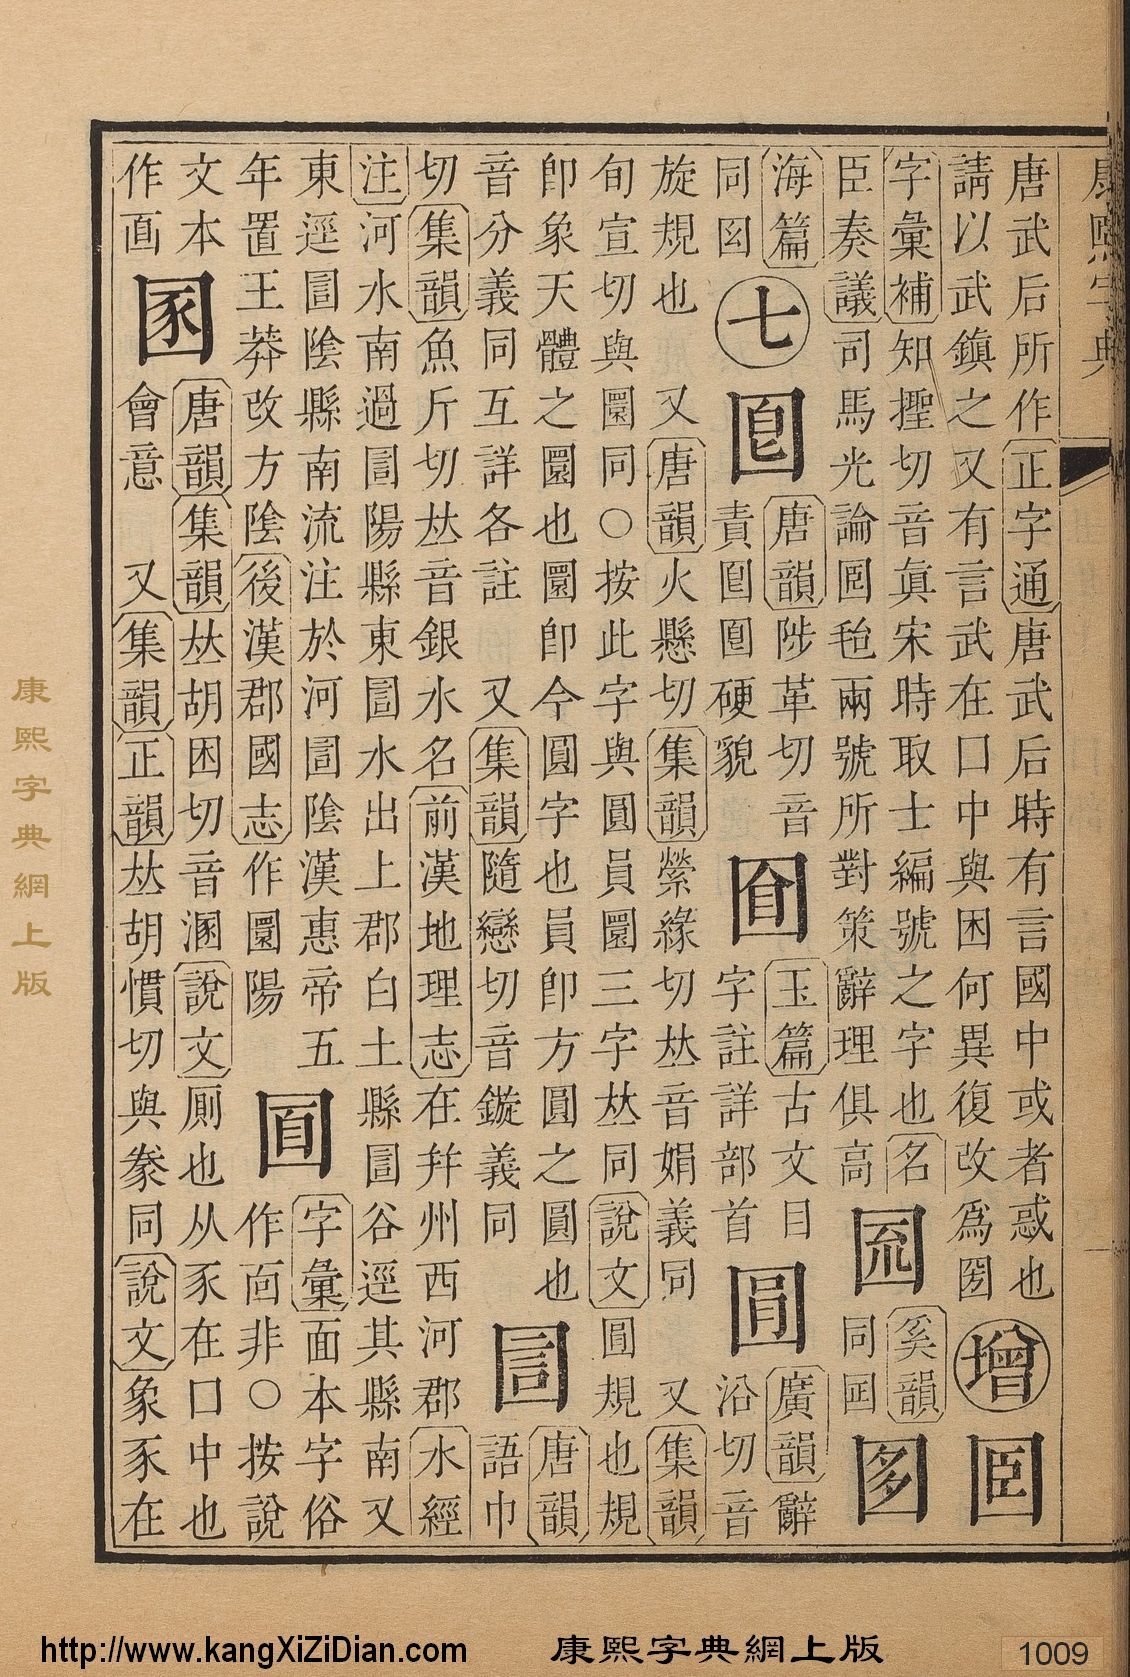 康熙字典
唐武后所作正字通唐武后時有言國中或者惑也
請以武鎮之又有言武在囗中與困何異復改爲圀
增
字彙補知切音眞宋時取士編號之字也名
臣奏議司馬光論兩號所對策辭理俱高
奚韻
同
海篇
同囟
七
唐韻陟革切音
責硬貌
玉篇古文目
字註詳部首
廣韻辭
沿切音
旋規也 又唐韻火懸切集韻縈緣切𠀤音娟義同 又集韻
旬宣切與圜同○按此字與圓員圜三字𠀤同說文圓規也規
卽象天體之圜也圜卽今圓字也員卽方圓之圓也
音分義同互詳各註 又集韻隨戀切音鏇義同
圁
唐韻
語巾
切集韻魚斤切𠀤音銀水名前漢地理志在幷州西河郡水經
注河水南過圁陽縣東圁水出上郡白土縣圁谷逕其縣南又
東逕圁陰縣南流注於河圁陰漢惠帝五
年置王莽改方陰後漢郡國志作圜陽
字彙面本字俗
作靣非○按說
文本
作
圂
唐韻集韻𠀤胡困切音溷說文厠也从豕在囗中也
會意 又集韻正韻𠀤胡慣切與豢同說文象豕在
康熙字典網上版
http://www.kangXiZiDian.com
康熙字典網上版
1009